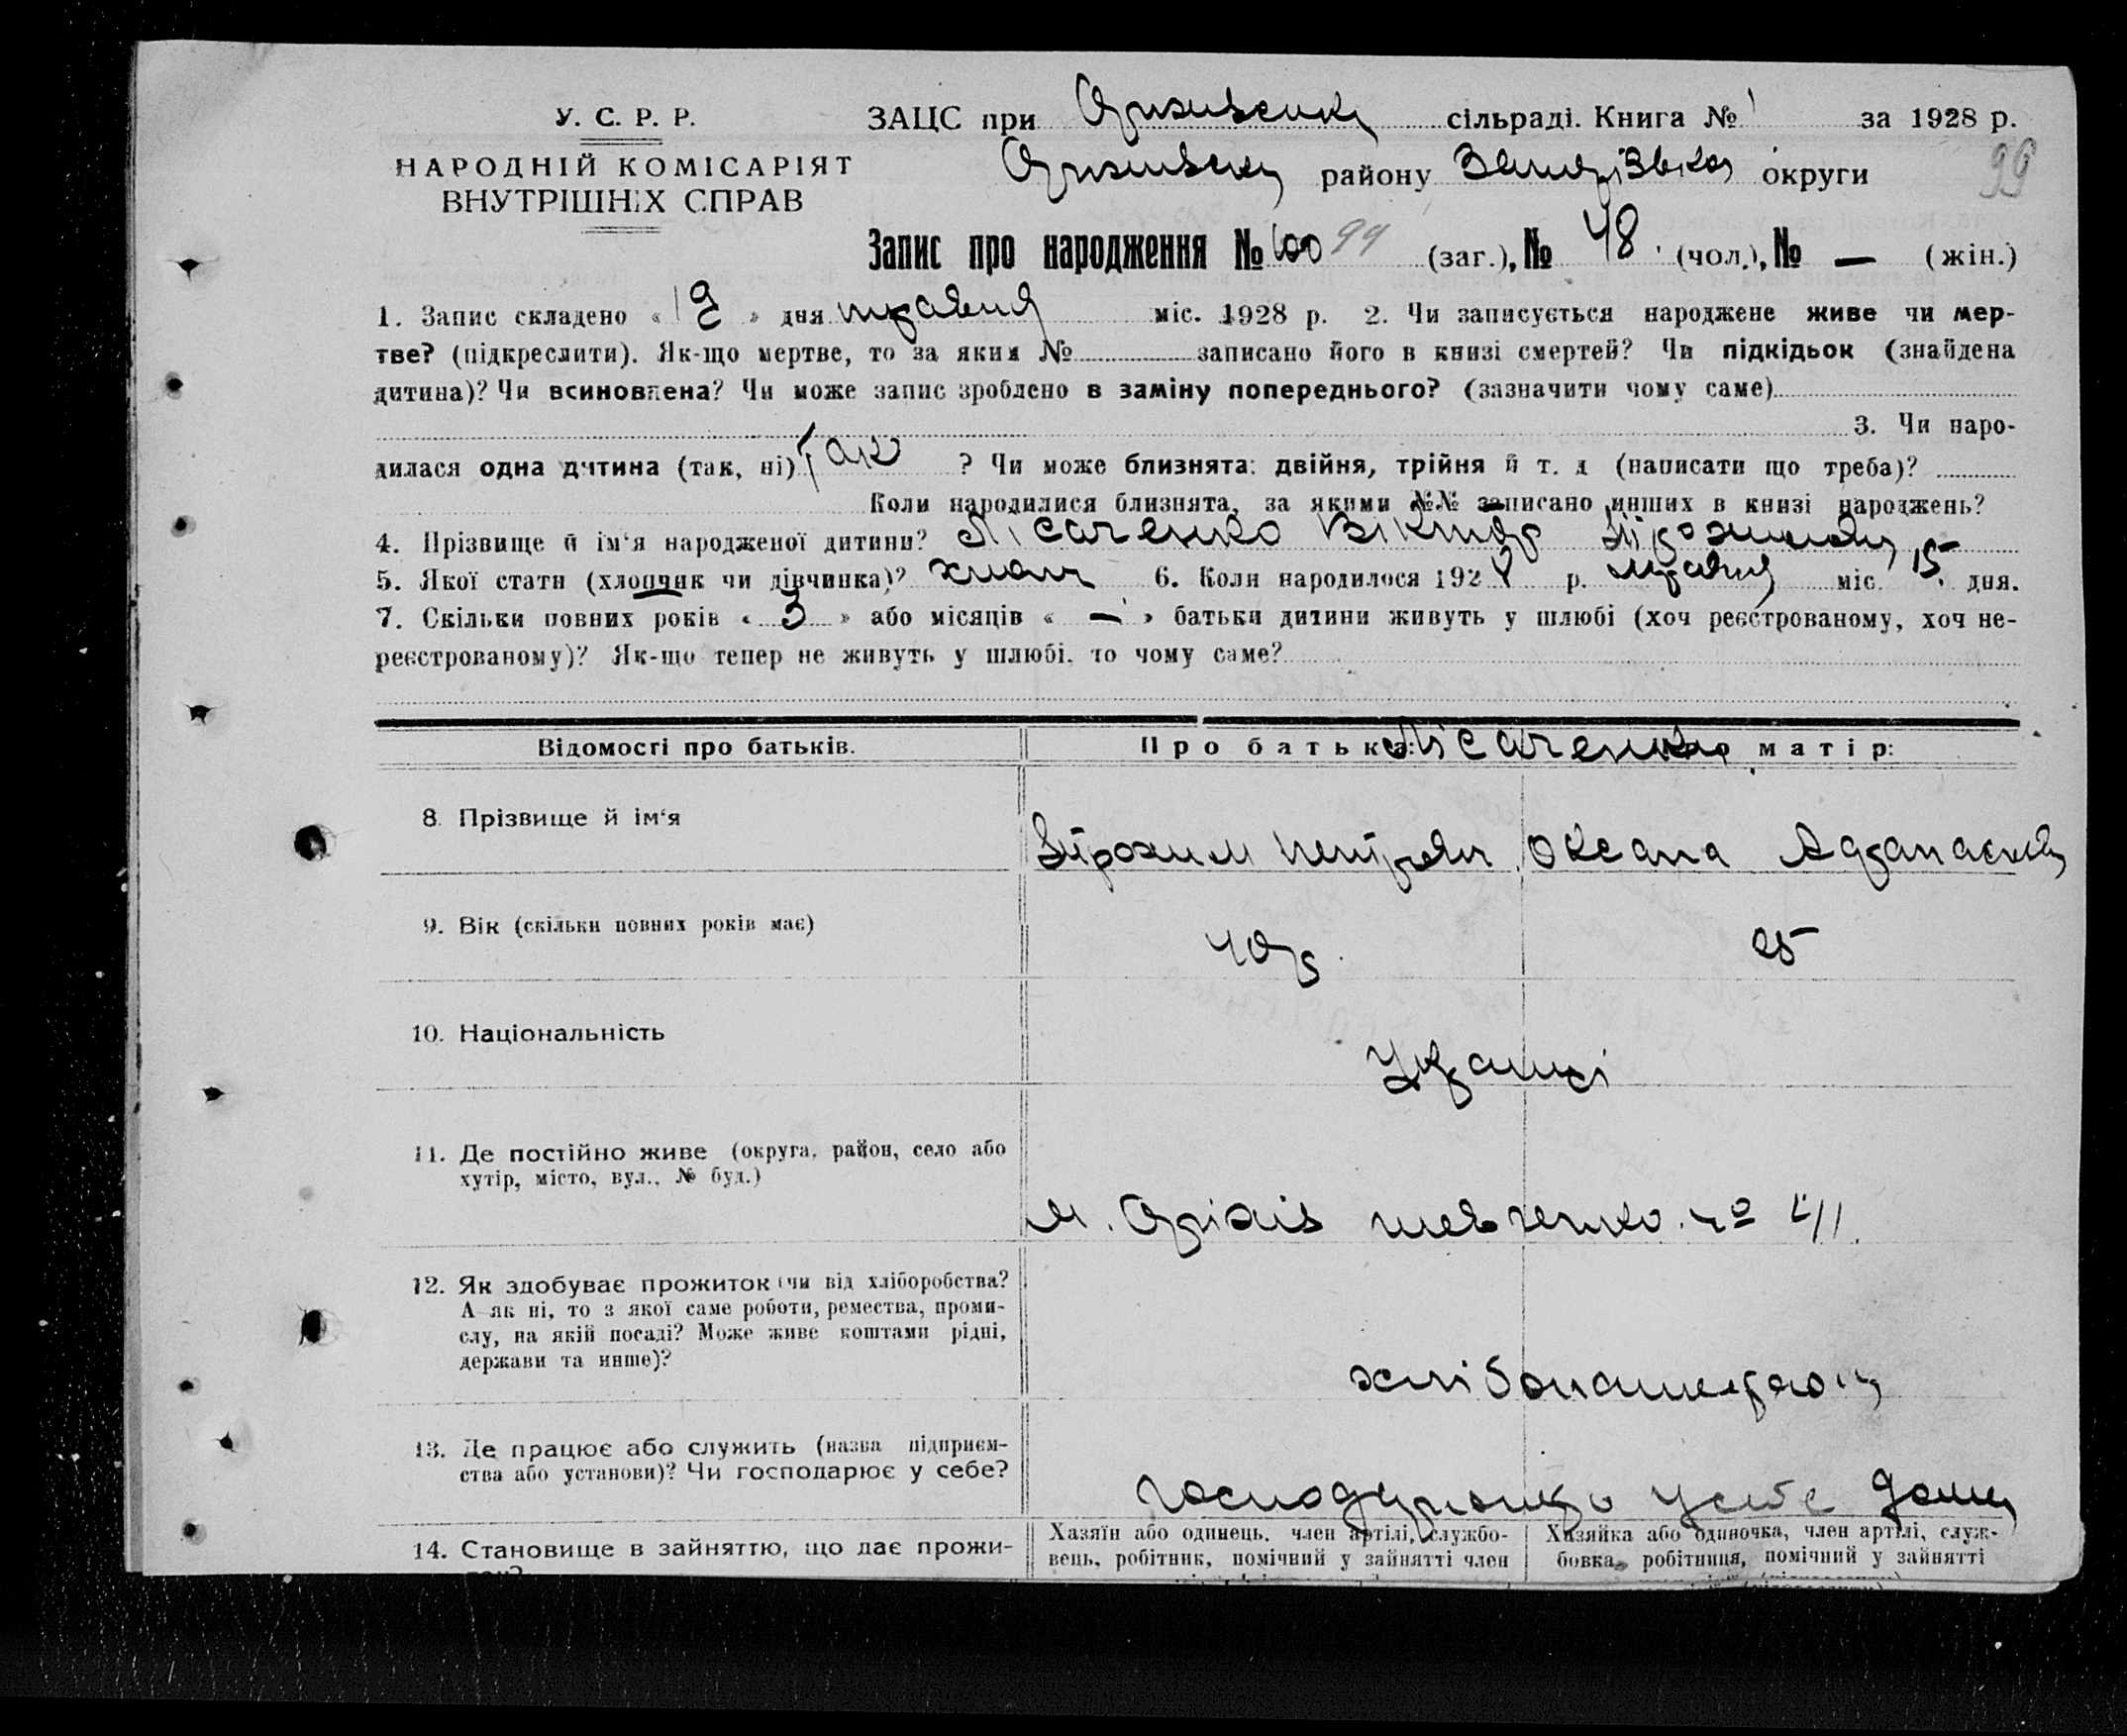 У. С. Р. Р.
НАРОДНІЙ КОМІСАРІЯТ
ВНУТРІШНІХ СПРАВ
ЗАЦС при Оріхівськ сільраді. Книга № 1 за 1928 р.
Оріхівськ району Запорізької округи
99
Запис про народження № 100 99 (заг.), № 48 (чол.), № — (жін.)
1. Запис складено « 19 » дня травня міс. 1928 р. 2. Чи записується народжене живе чи мер-
тве? (підкреслити). Як-що мертве, то за яким № записано його в книзі смертей? Чи підкідьок (знайдена
дитина)? Чи всиновлена? Чи може запис зроблено в заміну попереднього? (зазначити чому саме)
3. Чи наро-
дилася одна дитина (так, ні) Так ? Чи може близнята: двійня, трійня й т. д (написати що треба)?
Коли народилися близнята, за якими №№ записано инших в книзі народжень?
4. Прізвище й ім‘я народженої дитини? Лісаченко Віктор
5. Якої стати (хлопчик чи дівчинка)? хлопч 6. Коли народилося 1928 р. травня міс. 15 дня.
7. Скільки повних років « 3 » або місяців « — » батьки дитини живуть у шлюбі (хоч реєстрованому, хоч не-
реєстрованому)? Як-що тепер не живуть у шлюбі, то чому саме?
Відомості про батьків.
Про батька: Лісаченко матір:
8. Прізвище й ім‘я
Петрович Оксана
9. Вік (скільки повних років має)
40р. 25
10. Національність
Українці
11. Де постійно живе (округа, район, село або
хутір, місто, вул., № буд.)
м. Оріхів Шевченко
12. Як здобуває прожиток (чи від хліборобства?
А як ні, то з якої саме роботи, ремества, проми-
слу, на якій посаді? Може живе коштами рідні,
держави та инше)?
13. Де працює або служить (назва підприєм-
ства або установи)? Чи господарює у себе?
у себе дома
14. Становище в зайняттю, що дає прожи-
Хазяїн або одинець, член артілі, службо-
вець, робітник, помічний у зайнятті член
Хазяйка або одиночка, член артілі, служ-
бовка, робітниця, помічний у зайнятті